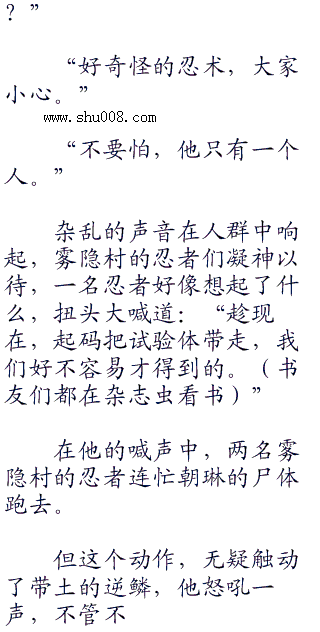 ？”
“好奇怪的忍术，大家
小心。”
www.shu008.com
“不要怕，他只有一个
人。”
杂乱的声音在人群中响
起，雾隐村的忍者们凝神以
待，一名忍者好像想起了什
么，扭头大喊道：“趁现
在，起码把试验体带走，我
们好不容易才得到的。（书
友们都在杂志虫看书）”
在他的喊声中，两名雾
隐村的忍者连忙朝琳的尸体
跑去。
但这个动作，无疑触动
了带土的逆鳞，他怒吼一
声，不管不